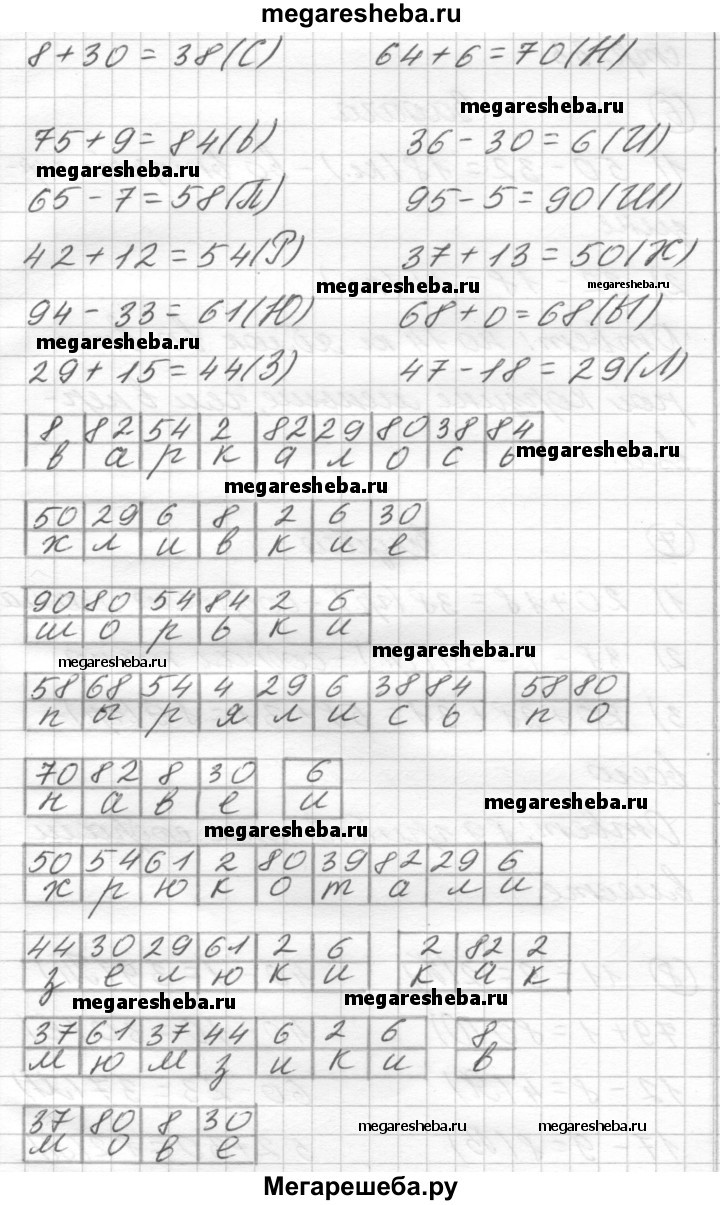 megaresheba.ru
8+30 = 38(С) 64+6=70(Н)
megaresheba.ru
75+9=84(Ь) 36-30=6(И)
megaresheba.ru
65-7=58(П) 95-5=90(Ш)
42+12=54(Р) 37+13=50(Ж)
megaresheba.ru megaresheba.ru
94-33=61(Ю) 68+0=68(Ы)
megaresheba.ru
29+15=44(З) 47-18=29(Л)
8 82 54 2 82 29 80 38 84
в а р к а л о с ь
megaresheba.ru
megaresheba.ru
50 29 6 8 2 6 30
х л и в к и е
90 80 54 84 2 6
ш о р ь к и
megaresheba.ru
megaresheba.ru
58 68 54 4 29 6 38 84 58 80
п ы р я л и с ь п о
70 82 8 30 6
н а в е и
megaresheba.ru
megaresheba.ru
50 54 61 2 80 39 82 29 6
х р ю к о т а л и
44 30 29 61 2 6 2 82 2
з е л ю к и к а к
megaresheba.ru megaresheba.ru
37 61 37 44 6 2 6 8
м ю м з и к и в
37 80 8 30
м о в е
megaresheba.ru megaresheba.ru
Мегарешеба.ру